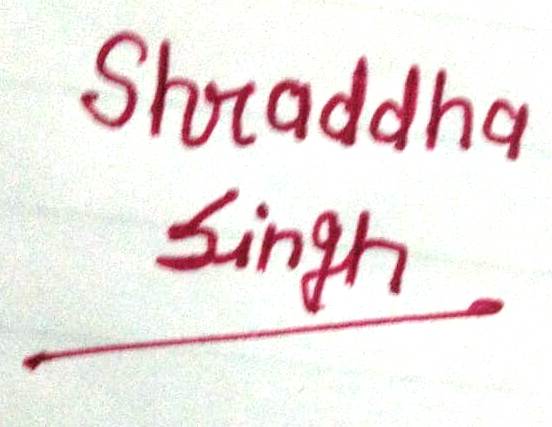 Shraddha
Singh